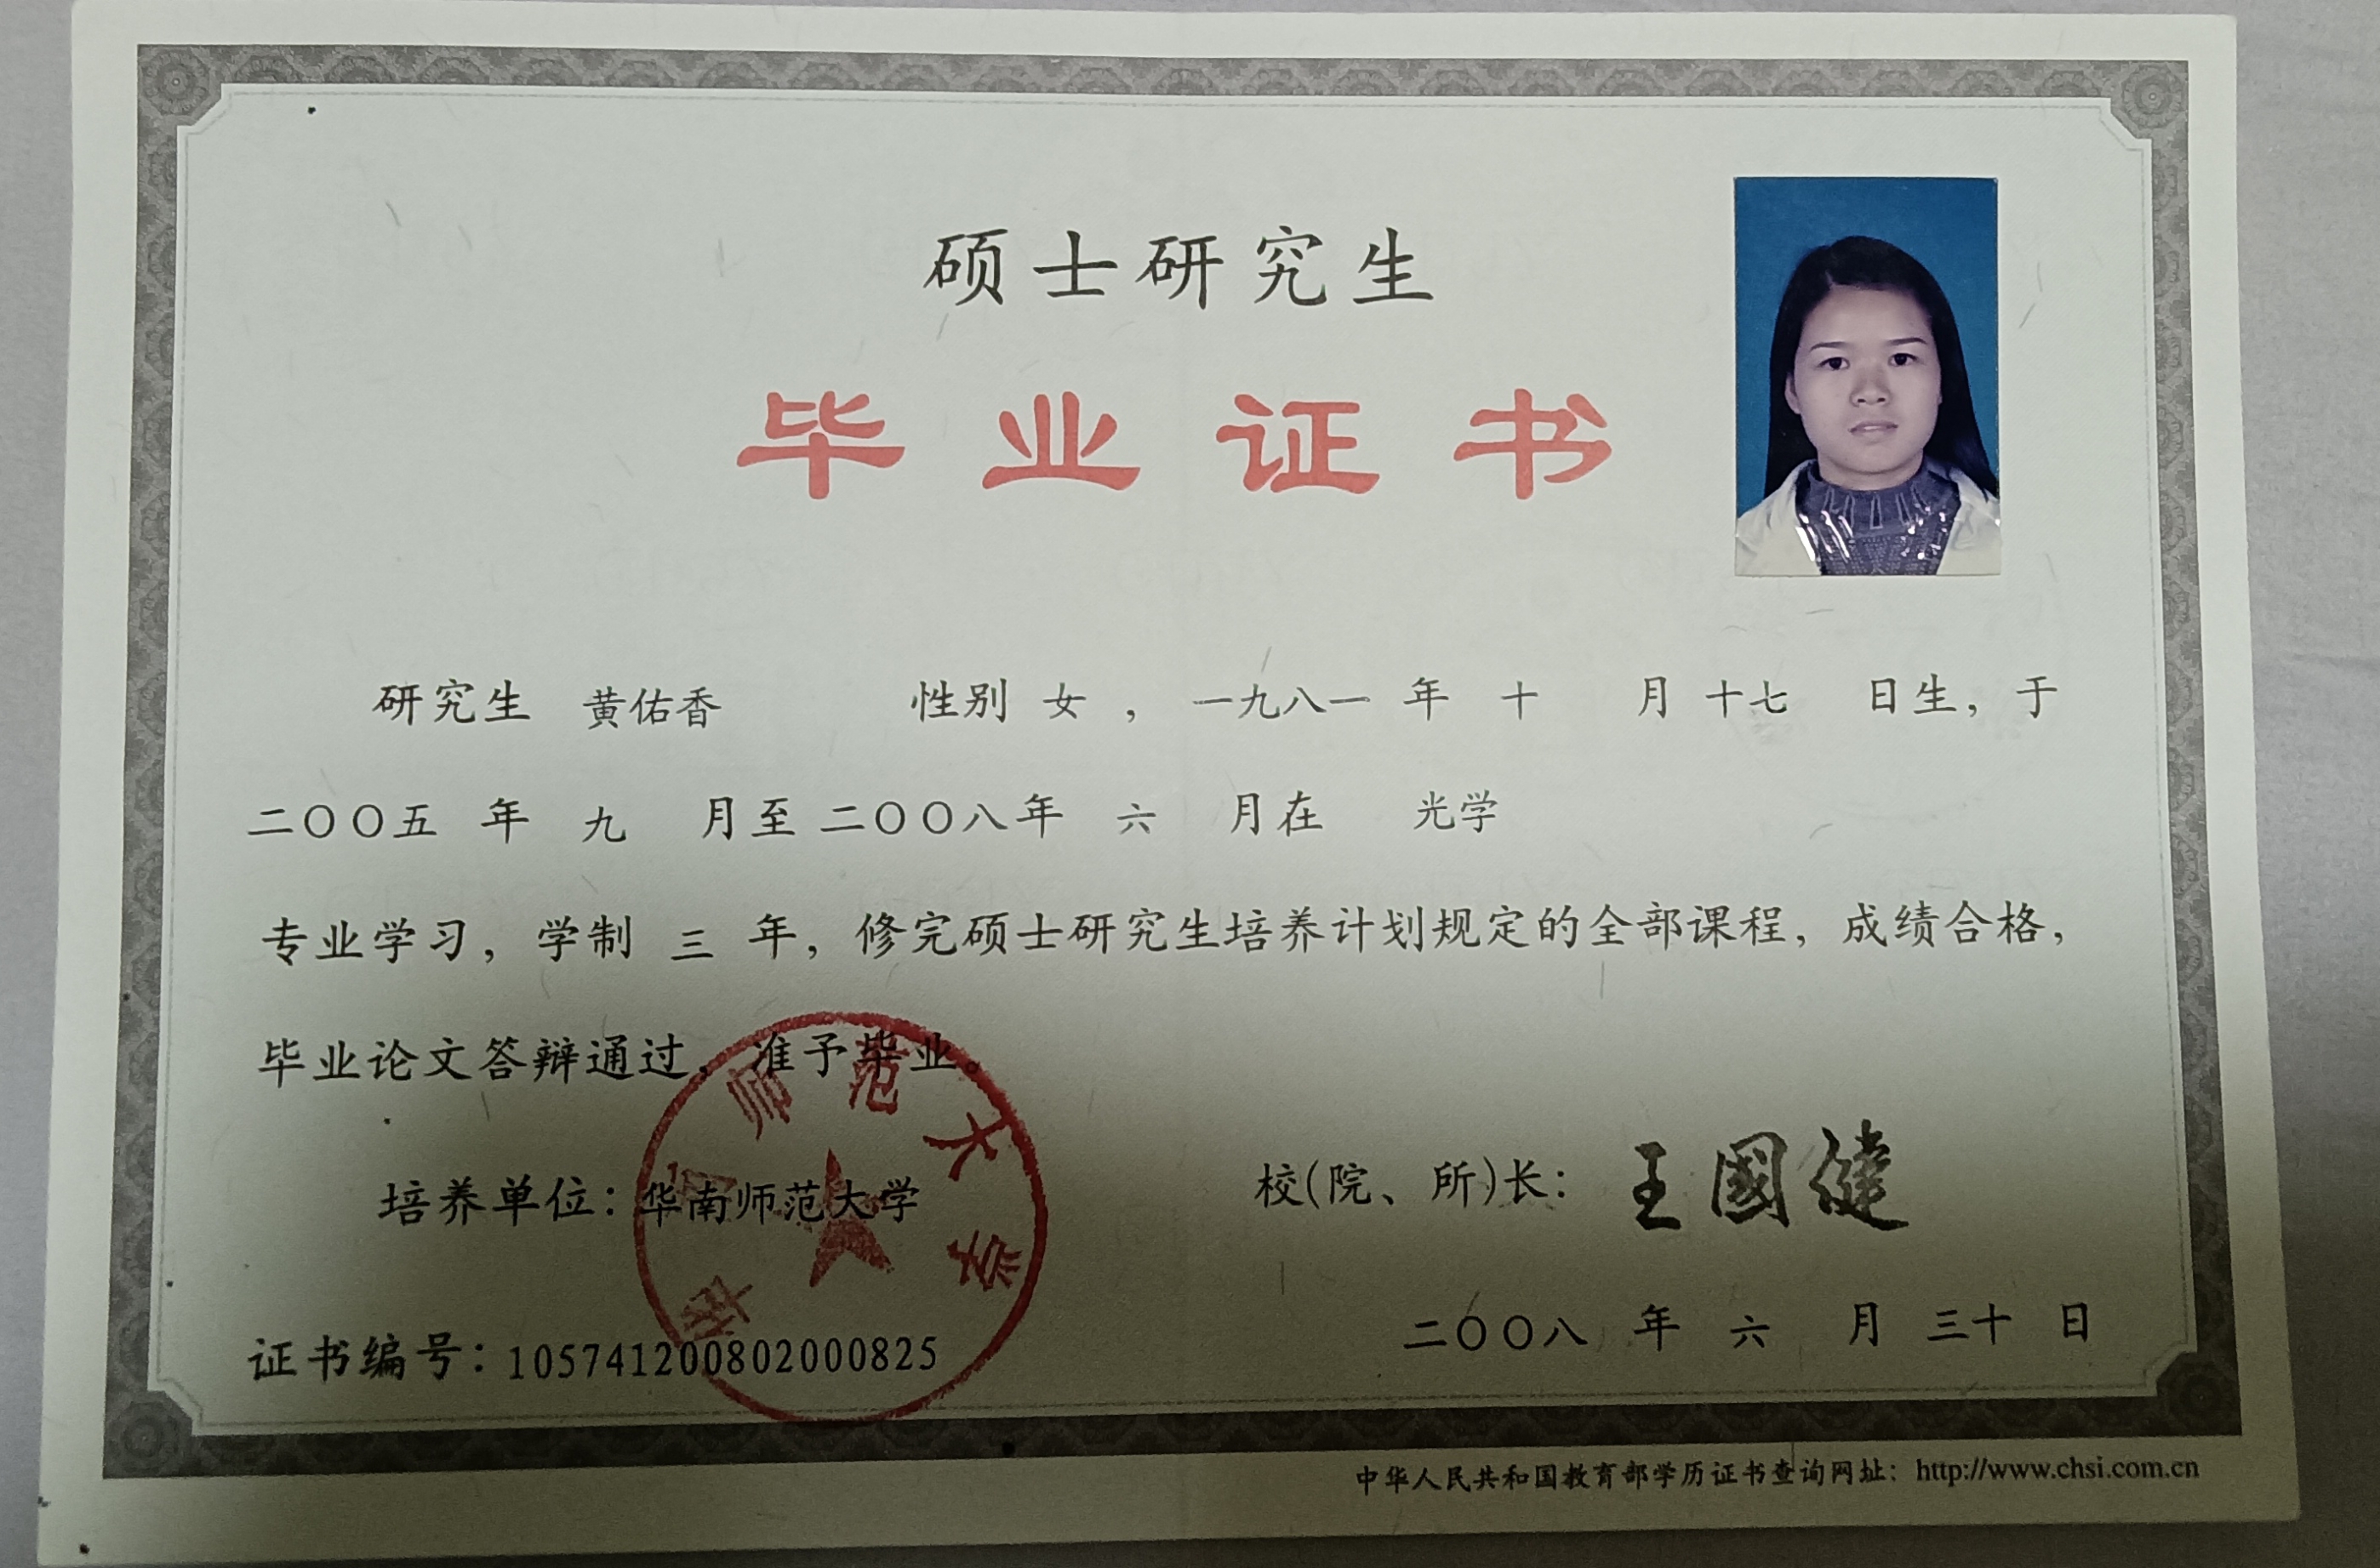 硕士研究生
毕业证书
研究生 黄佑香 性别 女 ， 一九八一 年 十 月 十七 日生，于
二〇〇五 年 九 月至 二〇〇八年 六 月在 光学
专业学习，学制 三 年，修完硕士研究生培养计划规定的全部课程，成绩合格，
毕业论文答辩通过，准予毕业。
华南师范大学
培养单位：华南师范大学
校(院、所)长：王國健
证书编号：105741200802000825
二〇〇八 年 六 月 三十 日
中华人民共和国教育部学历证书查询网址：http://www.chsi.com.cn